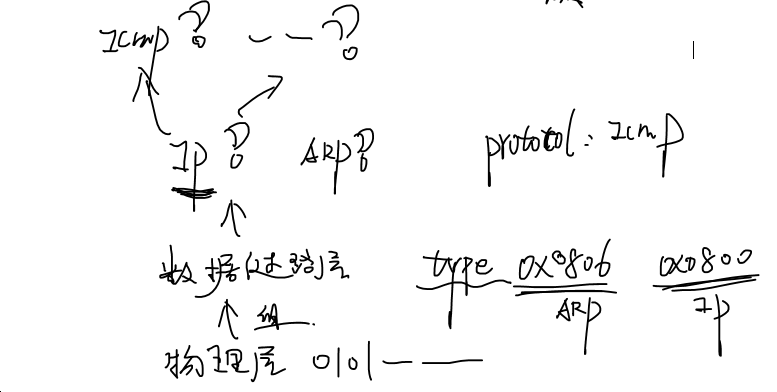 Icmp ? - - ?
IP ? ARP? protocol: Icmp
数据链路层 type 0x0806 0x0800
ARP IP
物理层 0101